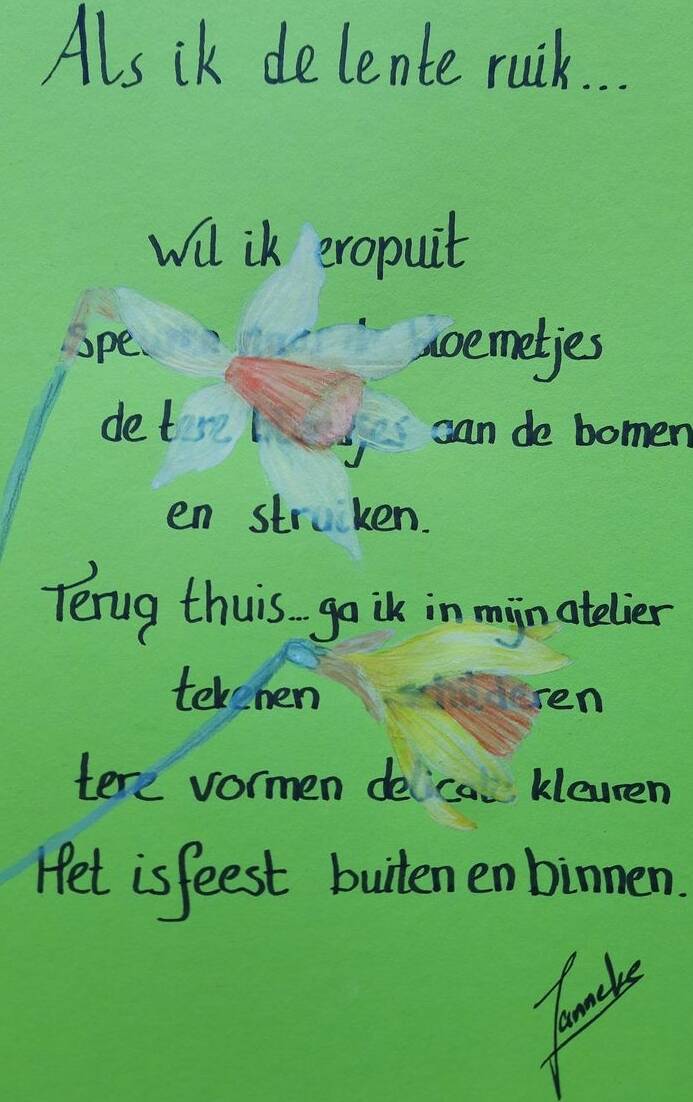 Als ik de lente ruik...
Wil ik eropuit
Speuren naar de bloemetjes
de tere aan de bomen
en struiken.
Terug thuis... ga ik in mijn atelier
tekenen schilderen
tere vormen delicate kleuren
Het is feest buiten en binnen.
Janneke